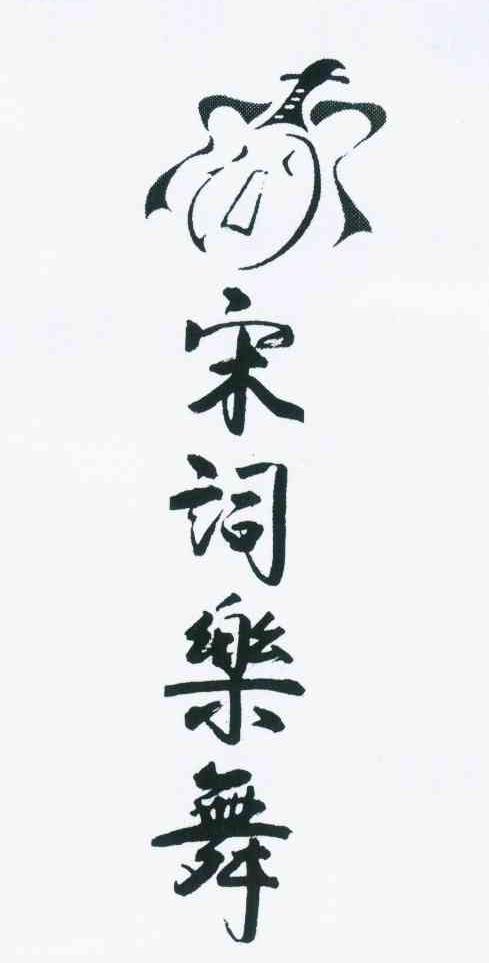 宋詞樂舞